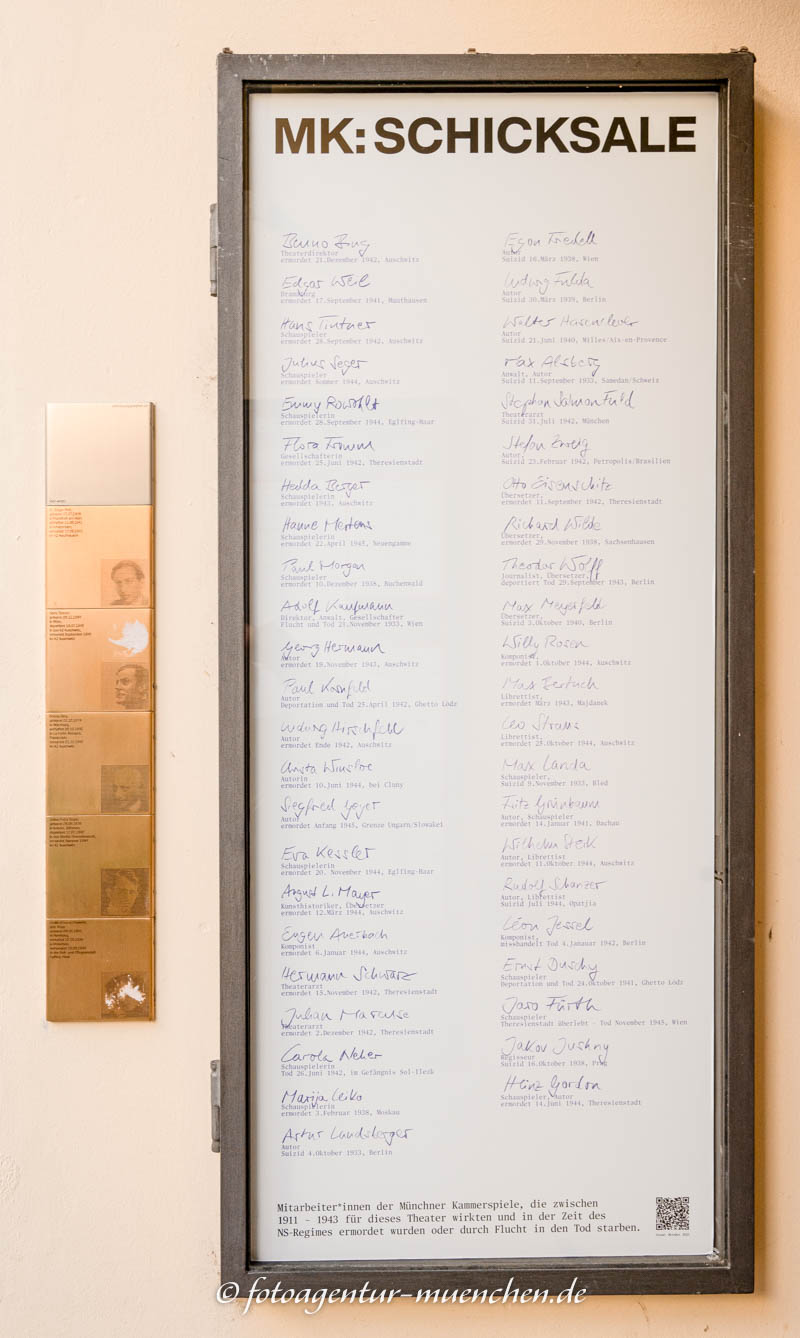 MK: SCHICKSALE
Bruno Burg
Theaterdirektor
ermordet 21.Dezember 1942, Auschwitz
Edgar Weil
Dramaturg
ermordet 17.September 1941, Mauthausen
Hans Tintner
Schauspieler
ermordet 28.September 1942, Auschwitz
Julius Seger
Schauspieler
ermordet Sommer 1944, Auschwitz
Emmy Rowohlt
Schauspielerin
ermordet 28.September 1944, Eglfing-Haar
Flora Fromm
Gesellschafterin
ermordet 25.Juni 1942, Theresienstadt
Hedda Berger
Schauspielerin
ermordet 1943, Auschwitz
Hanne Mertens
Schauspielerin
ermordet 22.April 1945, Neuengamme
Paul Morgan
Schauspieler
ermordet 10.Dezember 1938, Buchenwald
Adolf Kaufmann
Direktor, Anwalt, Gesellschafter
Flucht und Tod 21.November 1933, Wien
Georg Hermann
Autor
ermordet 19.November 1943, Auschwitz
Paul Kornfeld
Autor
Deportation und Tod 25.April 1942, Ghetto Lódz
Ludwig Hirschfeld
Autor
ermordet Ende 1942, Auschwitz
Christa Winsloe
Autorin
ermordet 10.Juni 1944, bei Cluny
Siegfried Geyer
Autor
ermordet Anfang 1945, Grenze Ungarn/Slowakei
Eva Kessler
Schauspielerin
ermordet 20. November 1944, Eglfing-Haar
August L. Mayer
Kunsthistoriker, Übersetzer
ermordet 12.März 1944, Auschwitz
Eugen Auerbach
Komponist
ermordet 6.Januar 1944, Auschwitz
Hermann Schwarz
Theaterarzt
ermordet 15.November 1942, Theresienstadt
Julian Marcuse
Theaterarzt
ermordet 2.Dezember 1942, Theresienstadt
Carola Neher
Schauspielerin
Tod 26.Juni 1942, im Gefängnis Sol-Ilezk
Marija Leiko
Schauspielerin
ermordet 3.Februar 1938, Moskau
Artur Landsberger
Autor
Suizid 4.Oktober 1933, Berlin
Egon Friedell
Autor
Suizid 16.März 1938, Wien
Ludwig Fulda
Autor
Suizid 30.März 1939, Berlin
Walter Hasenclever
Autor
Suizid 21.Juni 1940, Milles/Aix-en-Provence
Max Alsberg
Anwalt, Autor
Suizid 11.September 1933, Samedan/Schweiz
Stephan Salman Fuld
Theaterarzt
Suizid 31.Juli 1942, München
Stefan Zweig
Autor,
Suizid 23.Februar 1942, Petropolis/Brasilien
Otto Eisenschitz
Übersetzer,
ermordet 11.September 1942, Theresienstadt
Richard Wilde
Übersetzer,
ermordet 29.November 1938, Sachsenhausen
Theodor Wolff
Journalist, Übersetzer,
deportiert Tod 29.September 1943, Berlin
Max Meyerfeld
Übersetzer,
Suizid 3.Oktober 1940, Berlin
Willy Rosen
Komponist,
ermordet 1.Oktober 1944, Auschwitz
Max Bertuch
Librettist,
ermordet März 1943, Majdanek
Leo Strauss
Librettist,
ermordet 25.Oktober 1944, Auschwitz
Max Landa
Schauspieler,
Suizid 9.November 1933, Bled
Fritz Grünbaum
Autor, Schauspieler
ermordet 14.Januar 1941, Dachau
Wilhelm Sterk
Autor, Librettist
ermordet 11.Oktober 1944, Auschwitz
Rudolf Schanzer
Autor, Librettist
Suizid Juli 1944, Opatija
Léon Jessel
Komponist,
misshandelt Tod 4.Janauar 1942, Berlin
Ernst Duschy
Schauspieler
Deportation und Tod 24.Oktober 1941, Ghetto Lódz
Jaro Fürth
Schauspieler
Theresienstadt überlebt - Tod November 1945, Wien
Jakov Jushny
Regisseur
Suizid 16.Oktober 1938, Prag
Heinz Gordon
Schauspieler, Autor
ermordet 14.Juni 1944, Theresienstadt
Mitarbeiter*innen der Münchner Kammerspiele, die zwischen
1911 - 1943 für dieses Theater wirkten und in der Zeit des
NS-Regimes ermordet wurden oder durch Flucht in den Tod starben.
© fotoagentur-muenchen.de